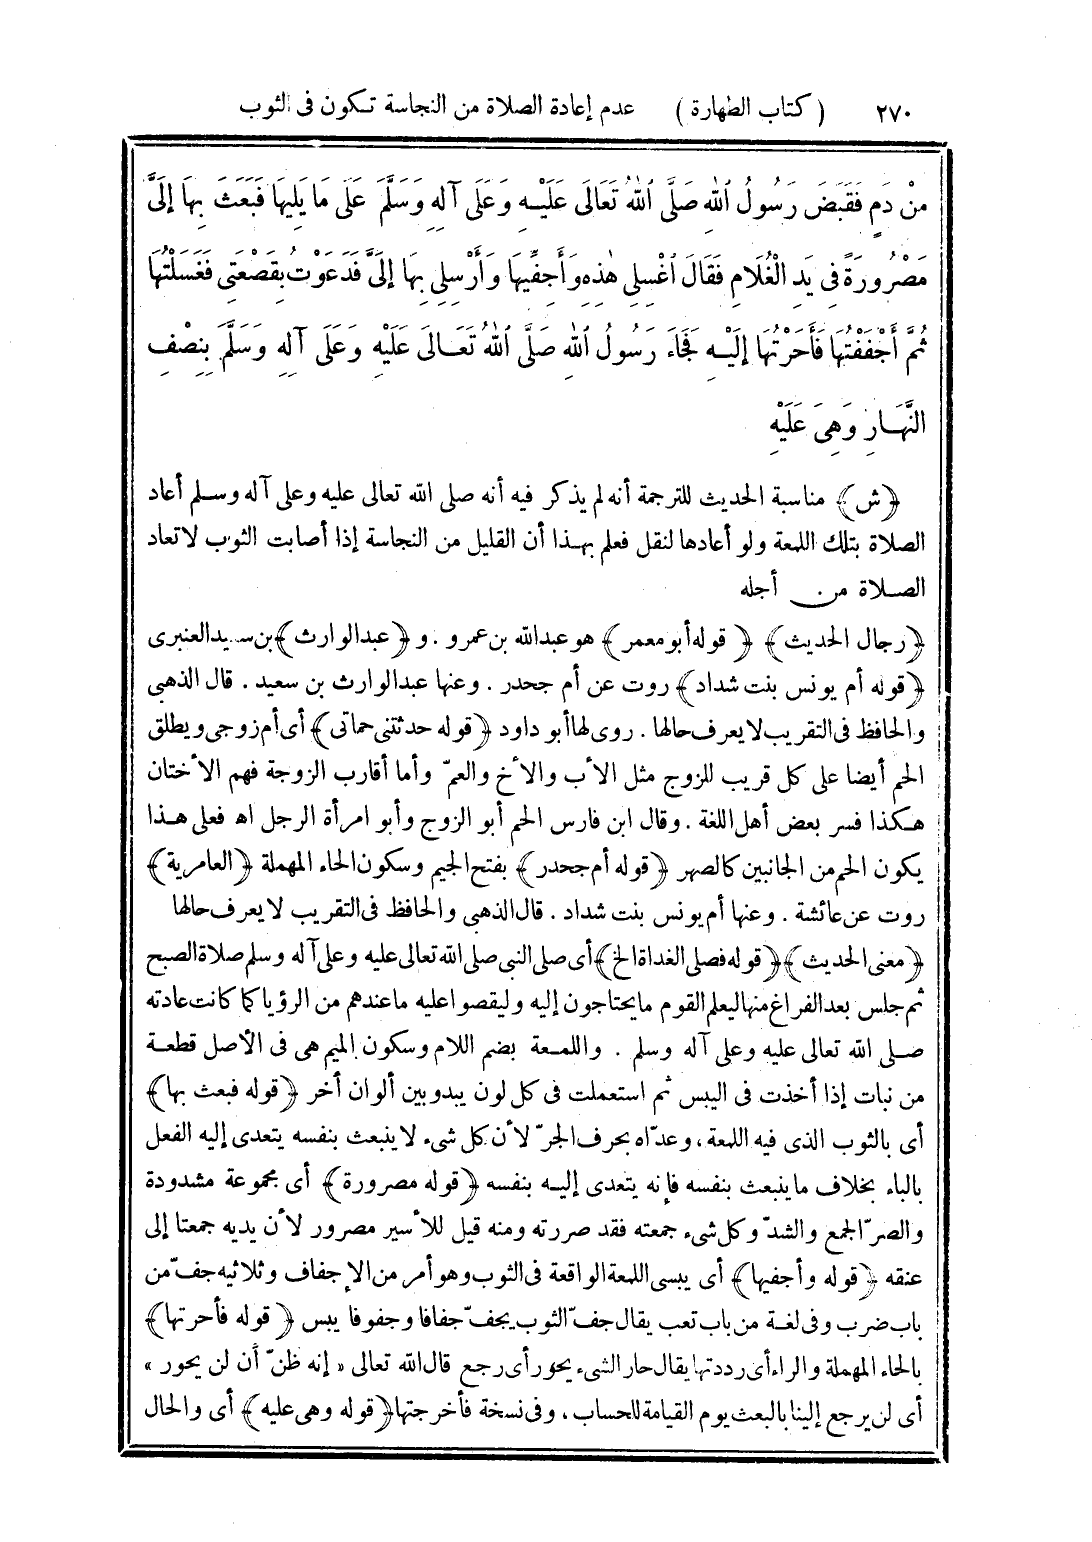 ٢٧٠ ( كتاب الطهارة ) عدم إعادة الصلاة من النجاسة تكون فى الثوب
مِنْ دَمٍ فَقَبَضَ رَسُولُ اللهِ صَلَّى اللهُ تَعَالَى عَلَيْهِ وَعَلَى آلِهِ وَسَلَّمَ عَلَى مَا يَلِيهَا فَبَعَثَ بِهَا إِلَىَّ
مَصْرُورَةً فِى يَدِ الْغُلَامِ فَقَالَ اغْسِلِى هٰذِهِ وَأَجِفِّيهَا وَأَرْسِلِى بِهَا إِلَىَّ فَدَعَوْتُ بِقَصْعَتِى فَغَسَلْتُهَا
ثُمَّ أَجْفَفْتُهَا فَأَحَرْتُهَا إِلَيْهِ فَجَاءَ رَسُولُ اللهِ صَلَّى اللهُ تَعَالَى عَلَيْهِ وَعَلَى آلِهِ وَسَلَّمَ بِنِصْفِ
النَّهَارِ وَهِىَ عَلَيْهِ
﴿ش﴾ مناسبة الحديث للترجمة أنه لم يذكر فيه أنه صلى الله تعالى عليه وعلى آله وسلم أعاد
الصلاة بتلك اللمعة ولو أعادها لنقل فعلم بهذا أن القليل من النجاسة إذا أصابت الثوب لا تعاد
الصلاة من أجله
﴿رجال الحديث﴾ ﴿قوله أبو معمر﴾ هو عبد الله بن عمرو . و ﴿عبد الوارث﴾ بن سعيد العنبرى
﴿قوله أم يونس بنت شداد﴾ روت عن أم جحدر . وعنها عبد الوارث بن سعيد . قال الذهبى
والحافظ فى التقريب لا يعرف حالها . روى لها أبو داود ﴿قوله حدثتنى حماتى﴾ أى أم زوجى ويطلق
الحم أيضا على كل قريب للزوج مثل الأب والأخ والعمّ وأما أقارب الزوجة فهم الأختان
هكذا فسر بعض أهل اللغة . وقال ابن فارس الحم أبو الزوج وأبو امرأة الرجل اه فعلى هذا
يكون الحم من الجانبين كالصهر ﴿قوله أم جحدر﴾ بفتح الجيم وسكون الحاء المهملة ﴿العامرية﴾
روت عن عائشة . وعنها أم يونس بنت شداد . قال الذهبى والحافظ فى التقريب لا يعرف حالها
﴿معنى الحديث﴾ ﴿قوله فصلى الغداة الخ﴾ أى صلى النبى صلى الله تعالى عليه وعلى آله وسلم صلاة الصبح
ثم جلس بعد الفراغ منها ليعلم القوم ما يحتاجون إليه وليقصوا عليه ما عندهم من الرؤيا كما كانت عادته
صلى الله تعالى عليه وعلى آله وسلم . واللمعة بضم اللام وسكون الميم هى فى الأصل قطعة
من نبات إذا أخذت فى اليبس ثم استعملت فى كل لون يبدو بين ألوان أخر ﴿قوله فبعث بها﴾
أى بالثوب الذى فيه اللمعة، وعدّاه بحرف الجرّ لأن كل شىء لا ينبعث بنفسه يتعدى إليه الفعل
بالباء بخلاف ما ينبعث بنفسه فإنه يتعدى إليه بنفسه ﴿قوله مصرورة﴾ أى مجموعة مشدودة
والصرّ الجمع والشدّ وكل شىء جمعته فقد صررته ومنه قيل للأسير مصرور لأن يديه جمعتا إلى
عنقه ﴿قوله وأجفيها﴾ أى يبسى اللمعة الواقعة فى الثوب وهو أمر من الإجفاف وثلاثيه جفّ من
باب ضرب وفى لغة من باب تعب يقال جفّ الثوب يجفّ جفافا وجفوفا يبس ﴿قوله فأحرتها﴾
بالحاء المهملة والراء أى رددتها يقال حار الشىء يحور أى رجع قال الله تعالى « إنه ظنّ أن لن يحور »
أى لن يرجع إلينا بالبعث يوم القيامة للحساب، وفى نسخة فأخرجتها ﴿قوله وهى عليه﴾ أى والحال